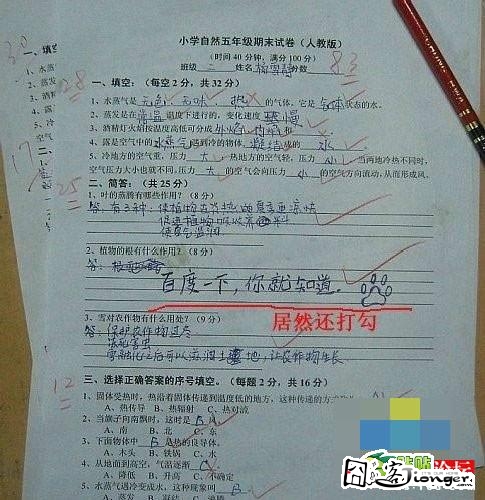 小学自然五年级期末试卷（人教版）
（时间40分钟，满分100分）
班级 三 姓名 分数 83
一、填空：（每空2分，共32分）
1、水蒸气是无色、无味、热的气体，它是气体状态的水。
2、蒸发是在常温温度下进行的，变化速度缓慢
3、酒精灯火焰按温度高低可分成外焰、内焰和
4、露是空气中的水蒸气遇到冷的物体，凝结成的水。
5、冷地方的空气重，压力大，热地方的空气轻，压力小。当两地冷热不同时，
空气压力大小也就不同，压力大的空气会向压力小的空气方向流动，从而形成风。
二、简答：（共25分）
1、叶的蒸腾有哪些作用？（8分）
答：有3种：使植物在炎热的夏天更凉快
促进植物吸收养料
使空气湿润
2、植物的根有什么作用？（8分）
答：
百度一下，你就知道。
居然还打勾
3、雪对农作物有什么用处？（9分）
答：保护农作物过冬
冻死害虫
雪融化之后可以滋润土地，让农作物生长
三、选择正确答案的序号填空。（每题2分，共16分）
1、固体受热时，热沿着固体传递到温度低的地方，这种传递的方式
A、热传导 B、热辐射 C、热对流
2、当旗子向南飘时，这时是B风。
A、南 B、北 C、东
3、下面物体中 B 是热的良导体。
A、木头 B、铁锅 C、水
4、从地面到高空，气温逐渐 A
A、降低 B、升高 C、不确定
5、水蒸气遇冷变成水，这种现象叫 B
A、蒸发 B、凝结 C、沸腾
28
25
17
12